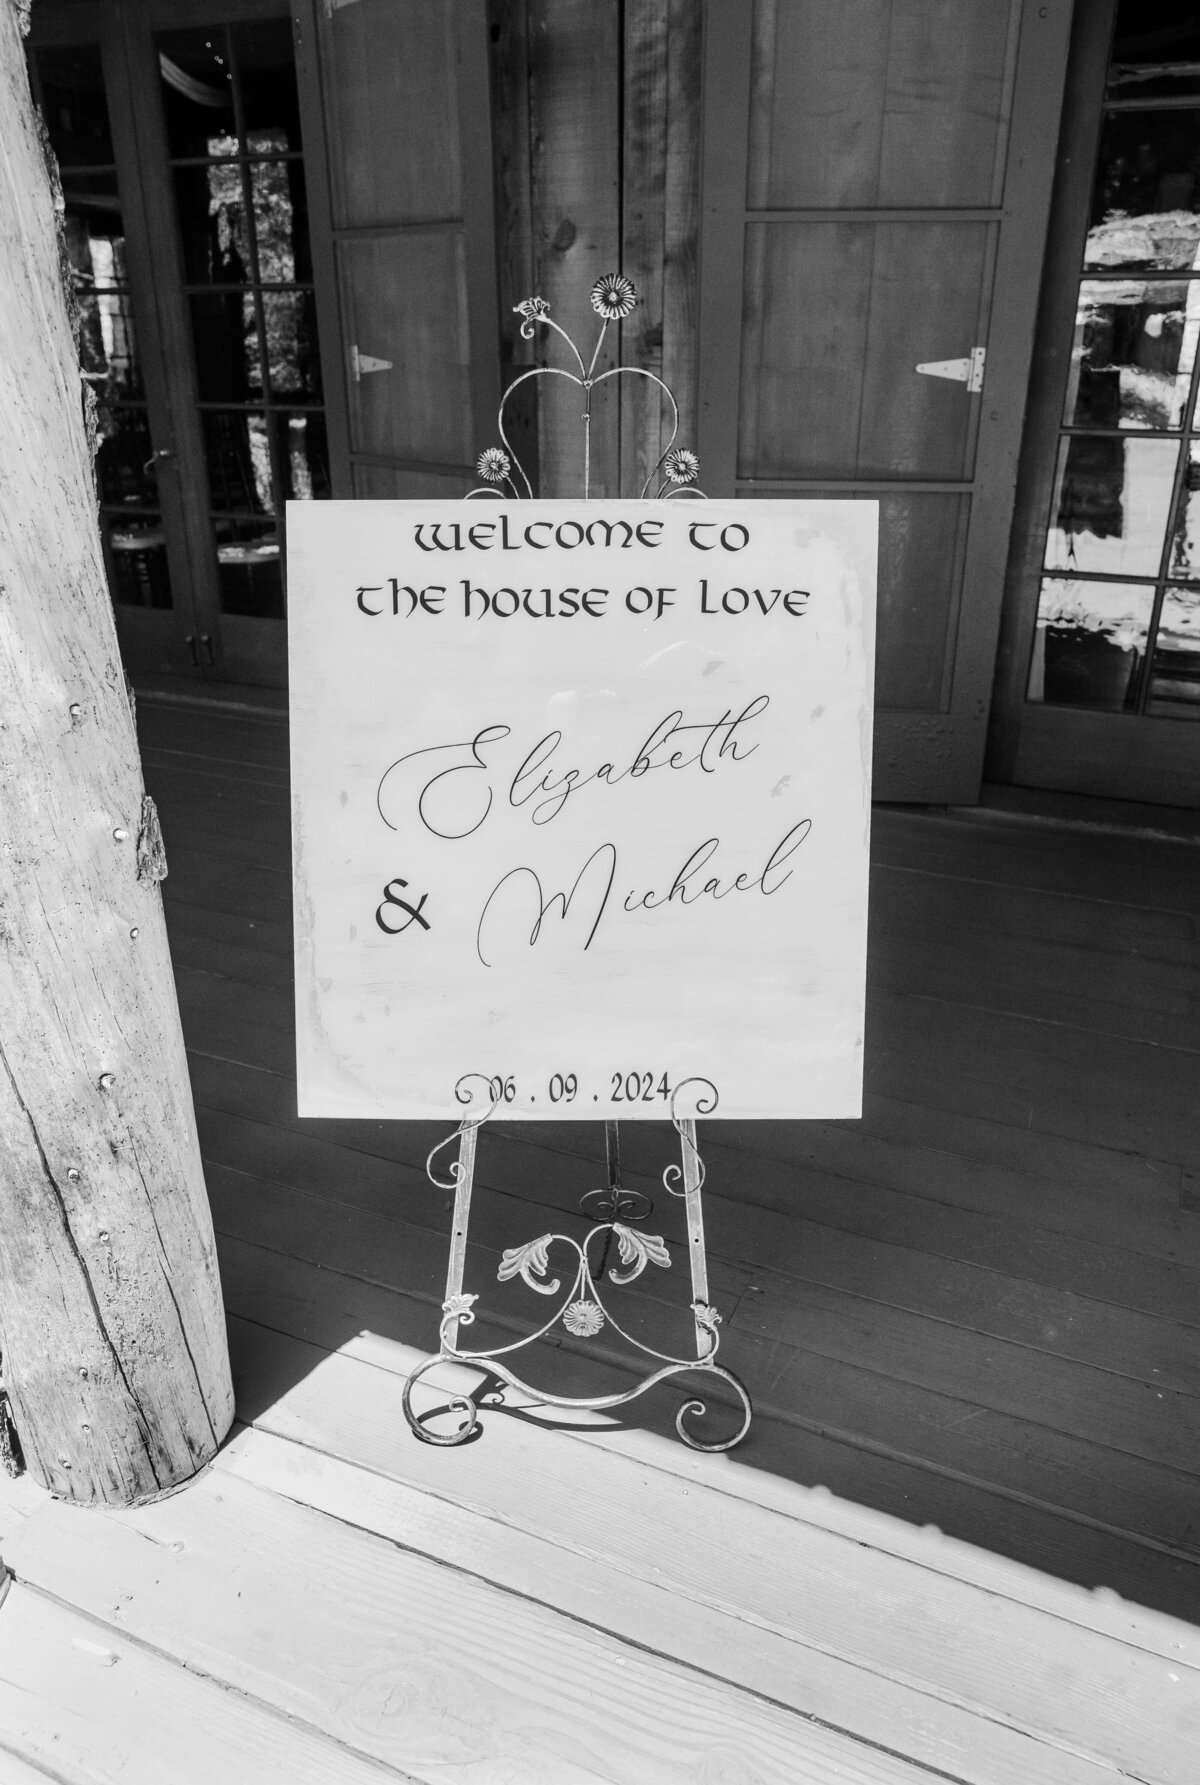 WELCOME TO
THE HOUSE OF LOVE
Elizabeth
& Michael
06 . 09 . 2024